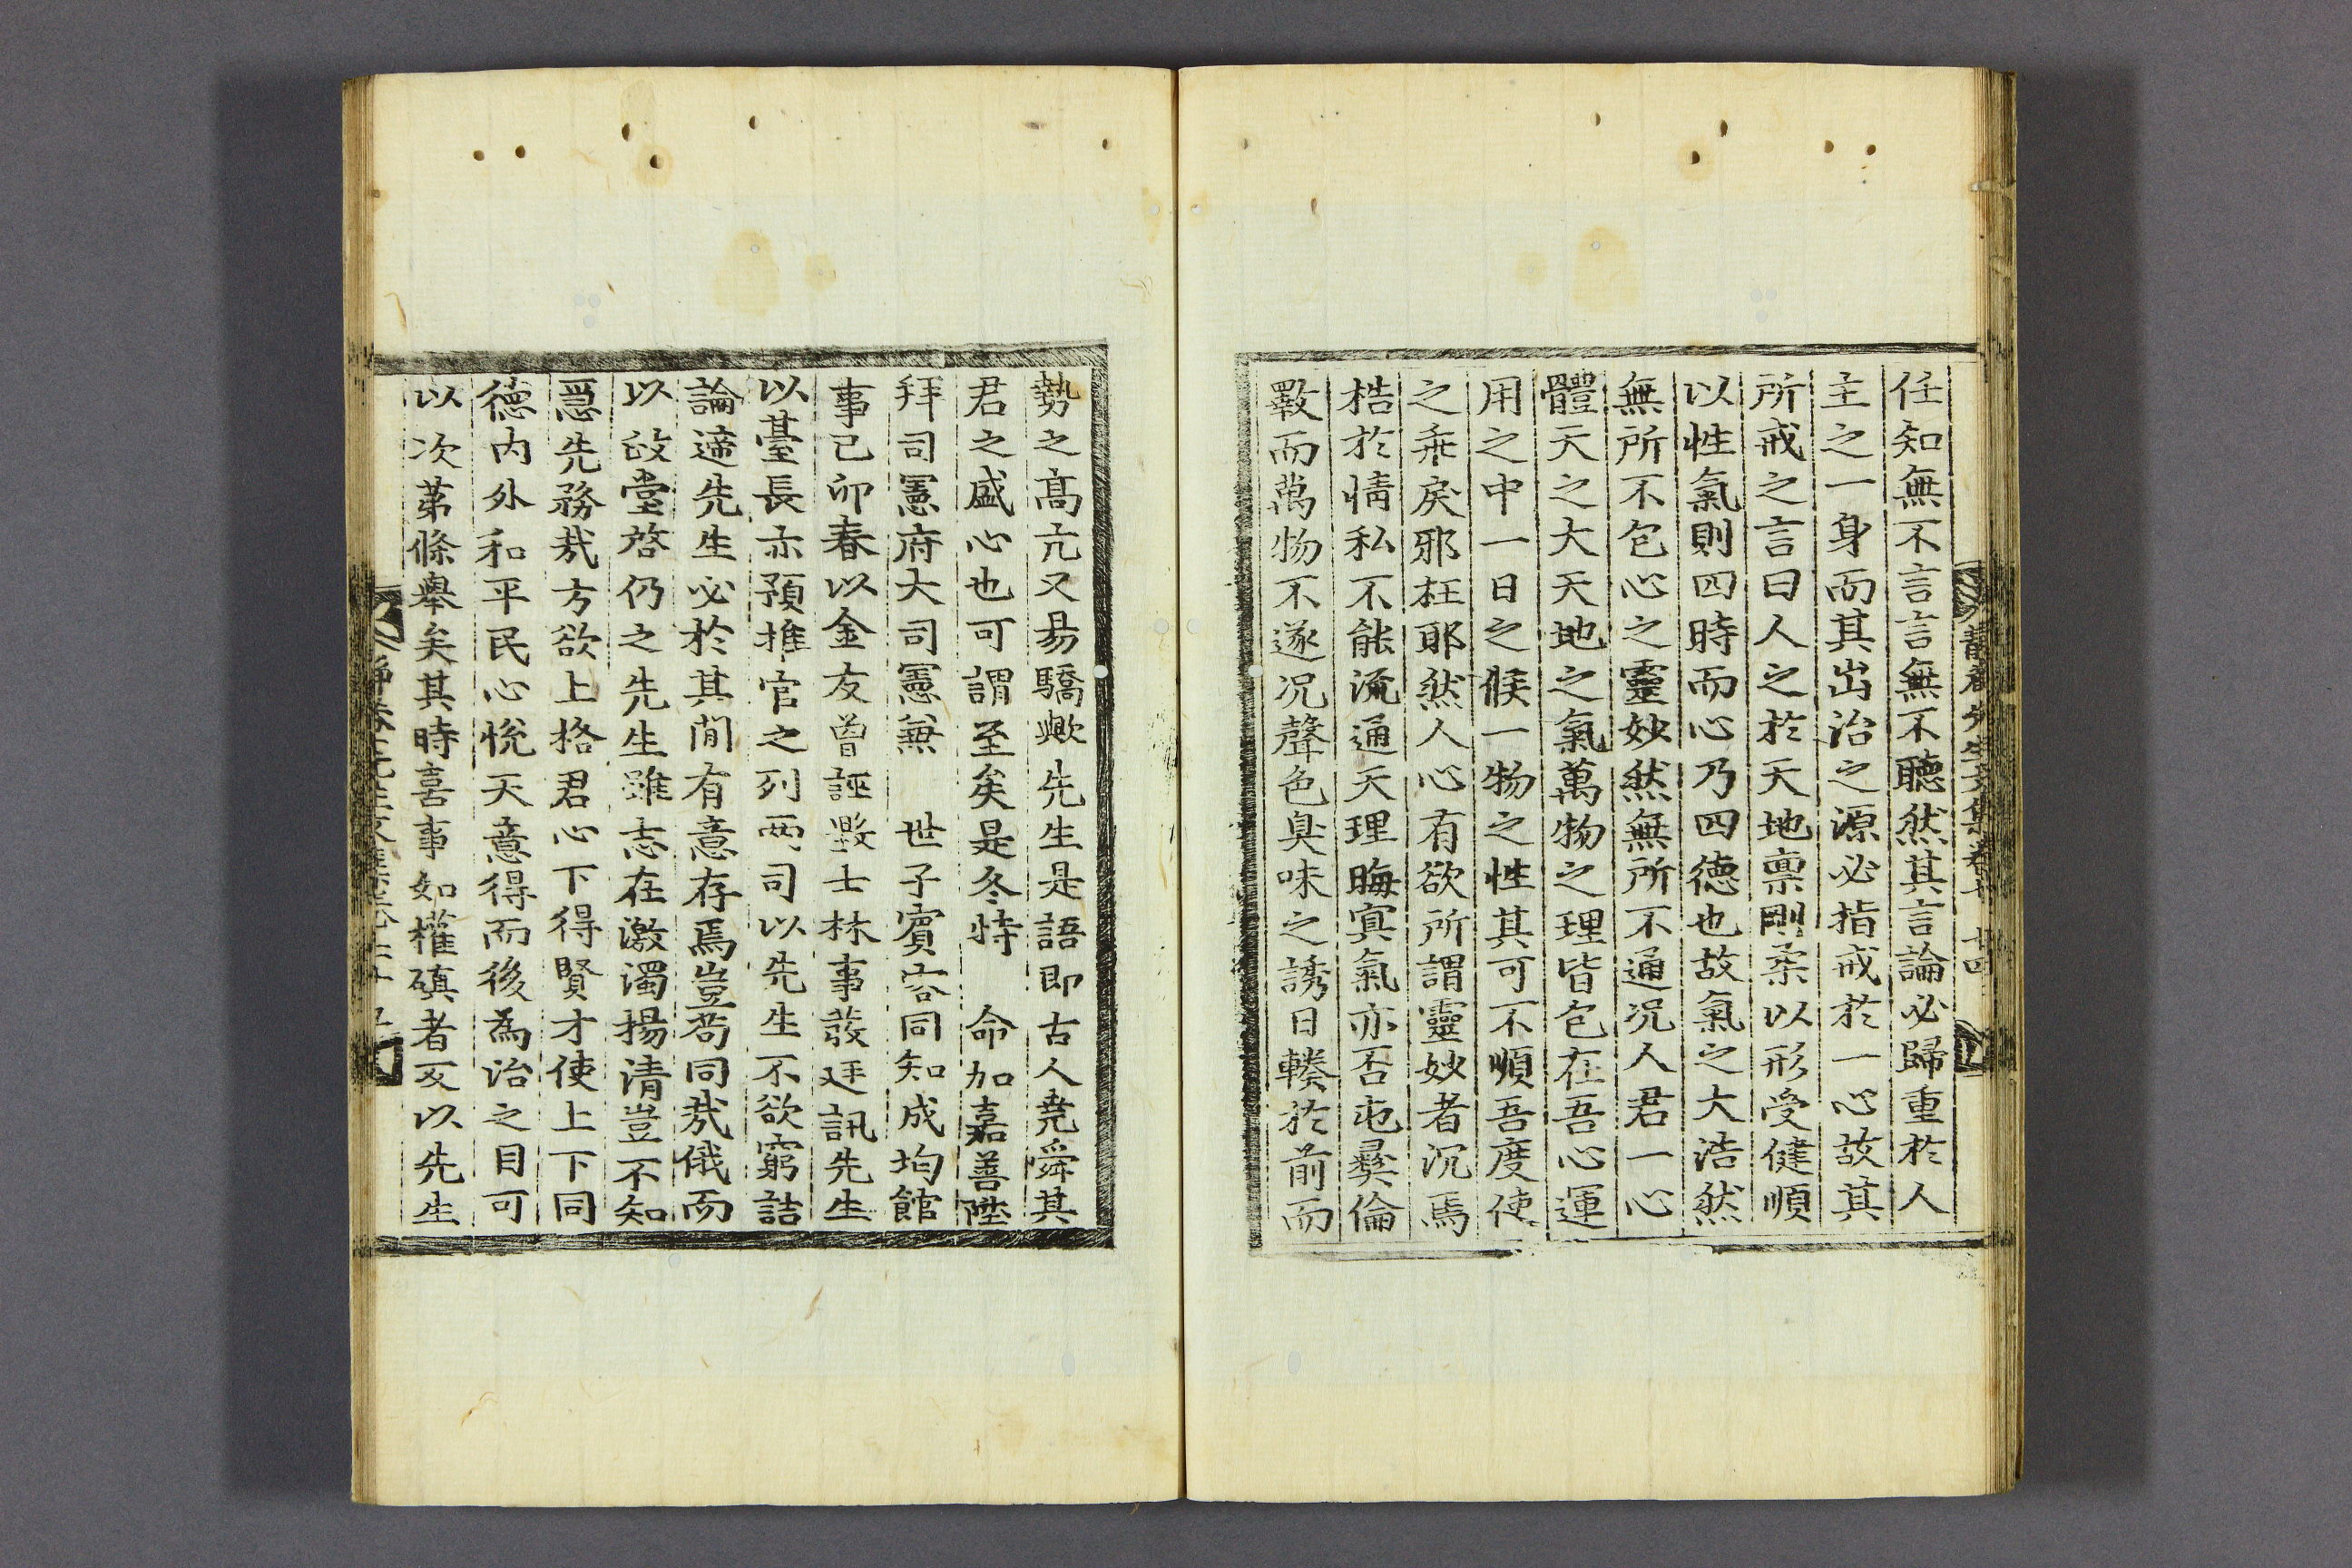 任知無不言言無不聽然其言論必歸重於人
主之一身而其出治之源必指戒於一心故其
所戒之言曰人之於天地禀剛柔以形受健順
以性氣則四時而心乃四德也故氣之大浩然
無所不包心之靈妙然無所不通况人君一心
體天之大天地之氣萬物之理皆包在吾心運
用之中一日之候一物之性其可不順吾度使
之乖戾邪枉耶然人心有欲所謂靈妙者沉焉
梏於情私不能流通天理晦冥氣亦否屯彛倫
斁而萬物不遂况聲色臭味之誘日轃於前而
勢之髙亢又易驕歟先生是語即古人堯舜其
君之盛心也可謂至矣是冬特 命加嘉善陞
拜司憲府大司憲兼 世子賓客同知成均館
事己卯春以金友曾誣毁士林事發廷訊先生
以臺長亦預推官之列兩司以先生不欲窮詰
論遆先生必於其間有意存焉豈苟同㢤俄而
以政堂啓仍之先生雖志在激濁揚清豈不知
急先務㢤方欲上格君心下得賢才使上下同
德内外和平民心悦天意得而後為治之目可
以次苐條舉矣其時喜事如權磌者又以先生